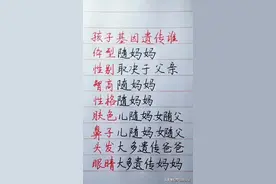 孩子基因遗传谁
体型随妈妈
性别取决于父亲
智商随妈妈
性格随妈妈
肤色儿随妈女随父
鼻子儿随妈女随父
头发大多遗传爸爸
眼睛大多遗传妈妈